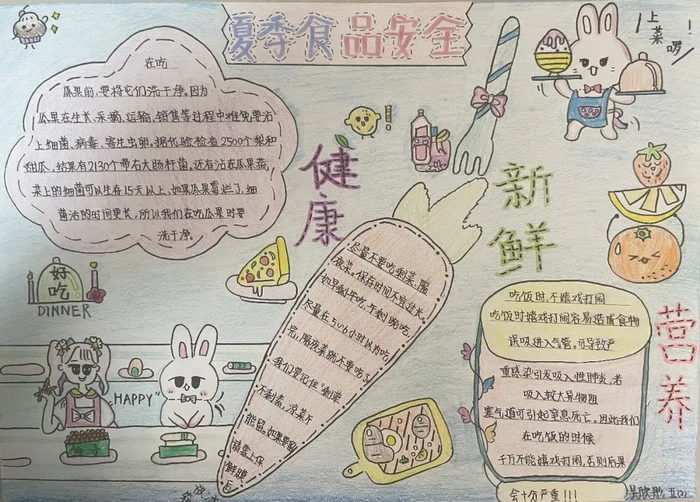 夏季食品安全
上菜啰!
在吃
瓜果前,要将它们洗干净。因为
瓜果在生长、采摘、运输、销售等过程中难免要沾
上细菌、病毒、寄生虫卵。据化验检查2500个梨和
甜瓜,结果有2130个带有大肠杆菌。还有沾在瓜果蔬
菜上的细菌可以生存15天以上,如果瓜果霉烂了,细
菌活的时间更长,所以我们在吃瓜果时要
洗干净。
健康
新鲜
营养
好吃
DINNER
HAPPY"
尽量不要吃剩菜、隔
夜菜。保存时间不宜过长。
如早剩午吃,午剩晚吃,
尽量在5或6小时以内吃
完。隔夜菜就不要吃了
我们要记住
不剩素,凉菜不
能留。如果要留
吃饭时,不嬉戏打闹
吃饭时嬉戏打闹容易造成食物
误吸进入气管。可导致严
重感染引发吸入性肺炎,若
吸入较大异物阻
塞气道可引起窒息死亡。因此我们
在吃饭的时候
千万不能嬉戏打闹,否则后果
会十分严重!!!